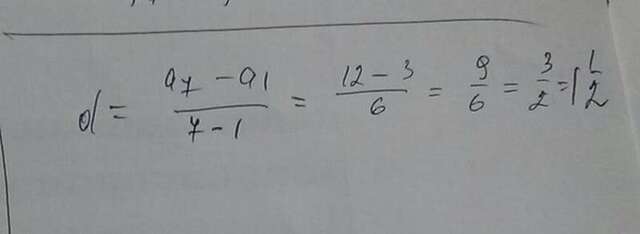 d = (a7 - a1)/(7 - 1) = (12 - 3)/6 = 9/6 = 3/2 = 1 1/2